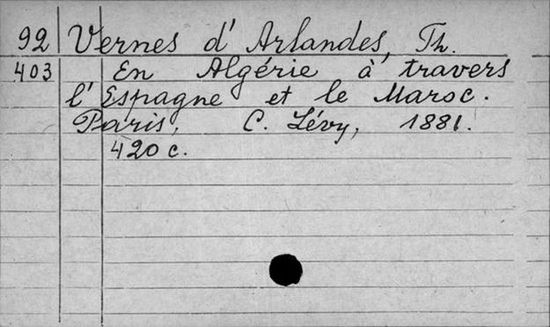 92 Vernes d'Arlandes, Th.
403 En Algérie à travers
l'Espagne et le Maroc.
Paris, C. Lévy, 1881.
420 c.